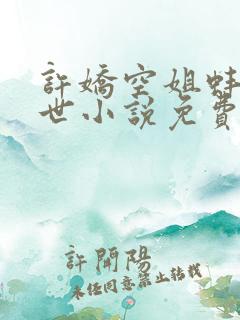 許嬌空姐蚌
世小說免費
許開陽
未經同意禁止轉載